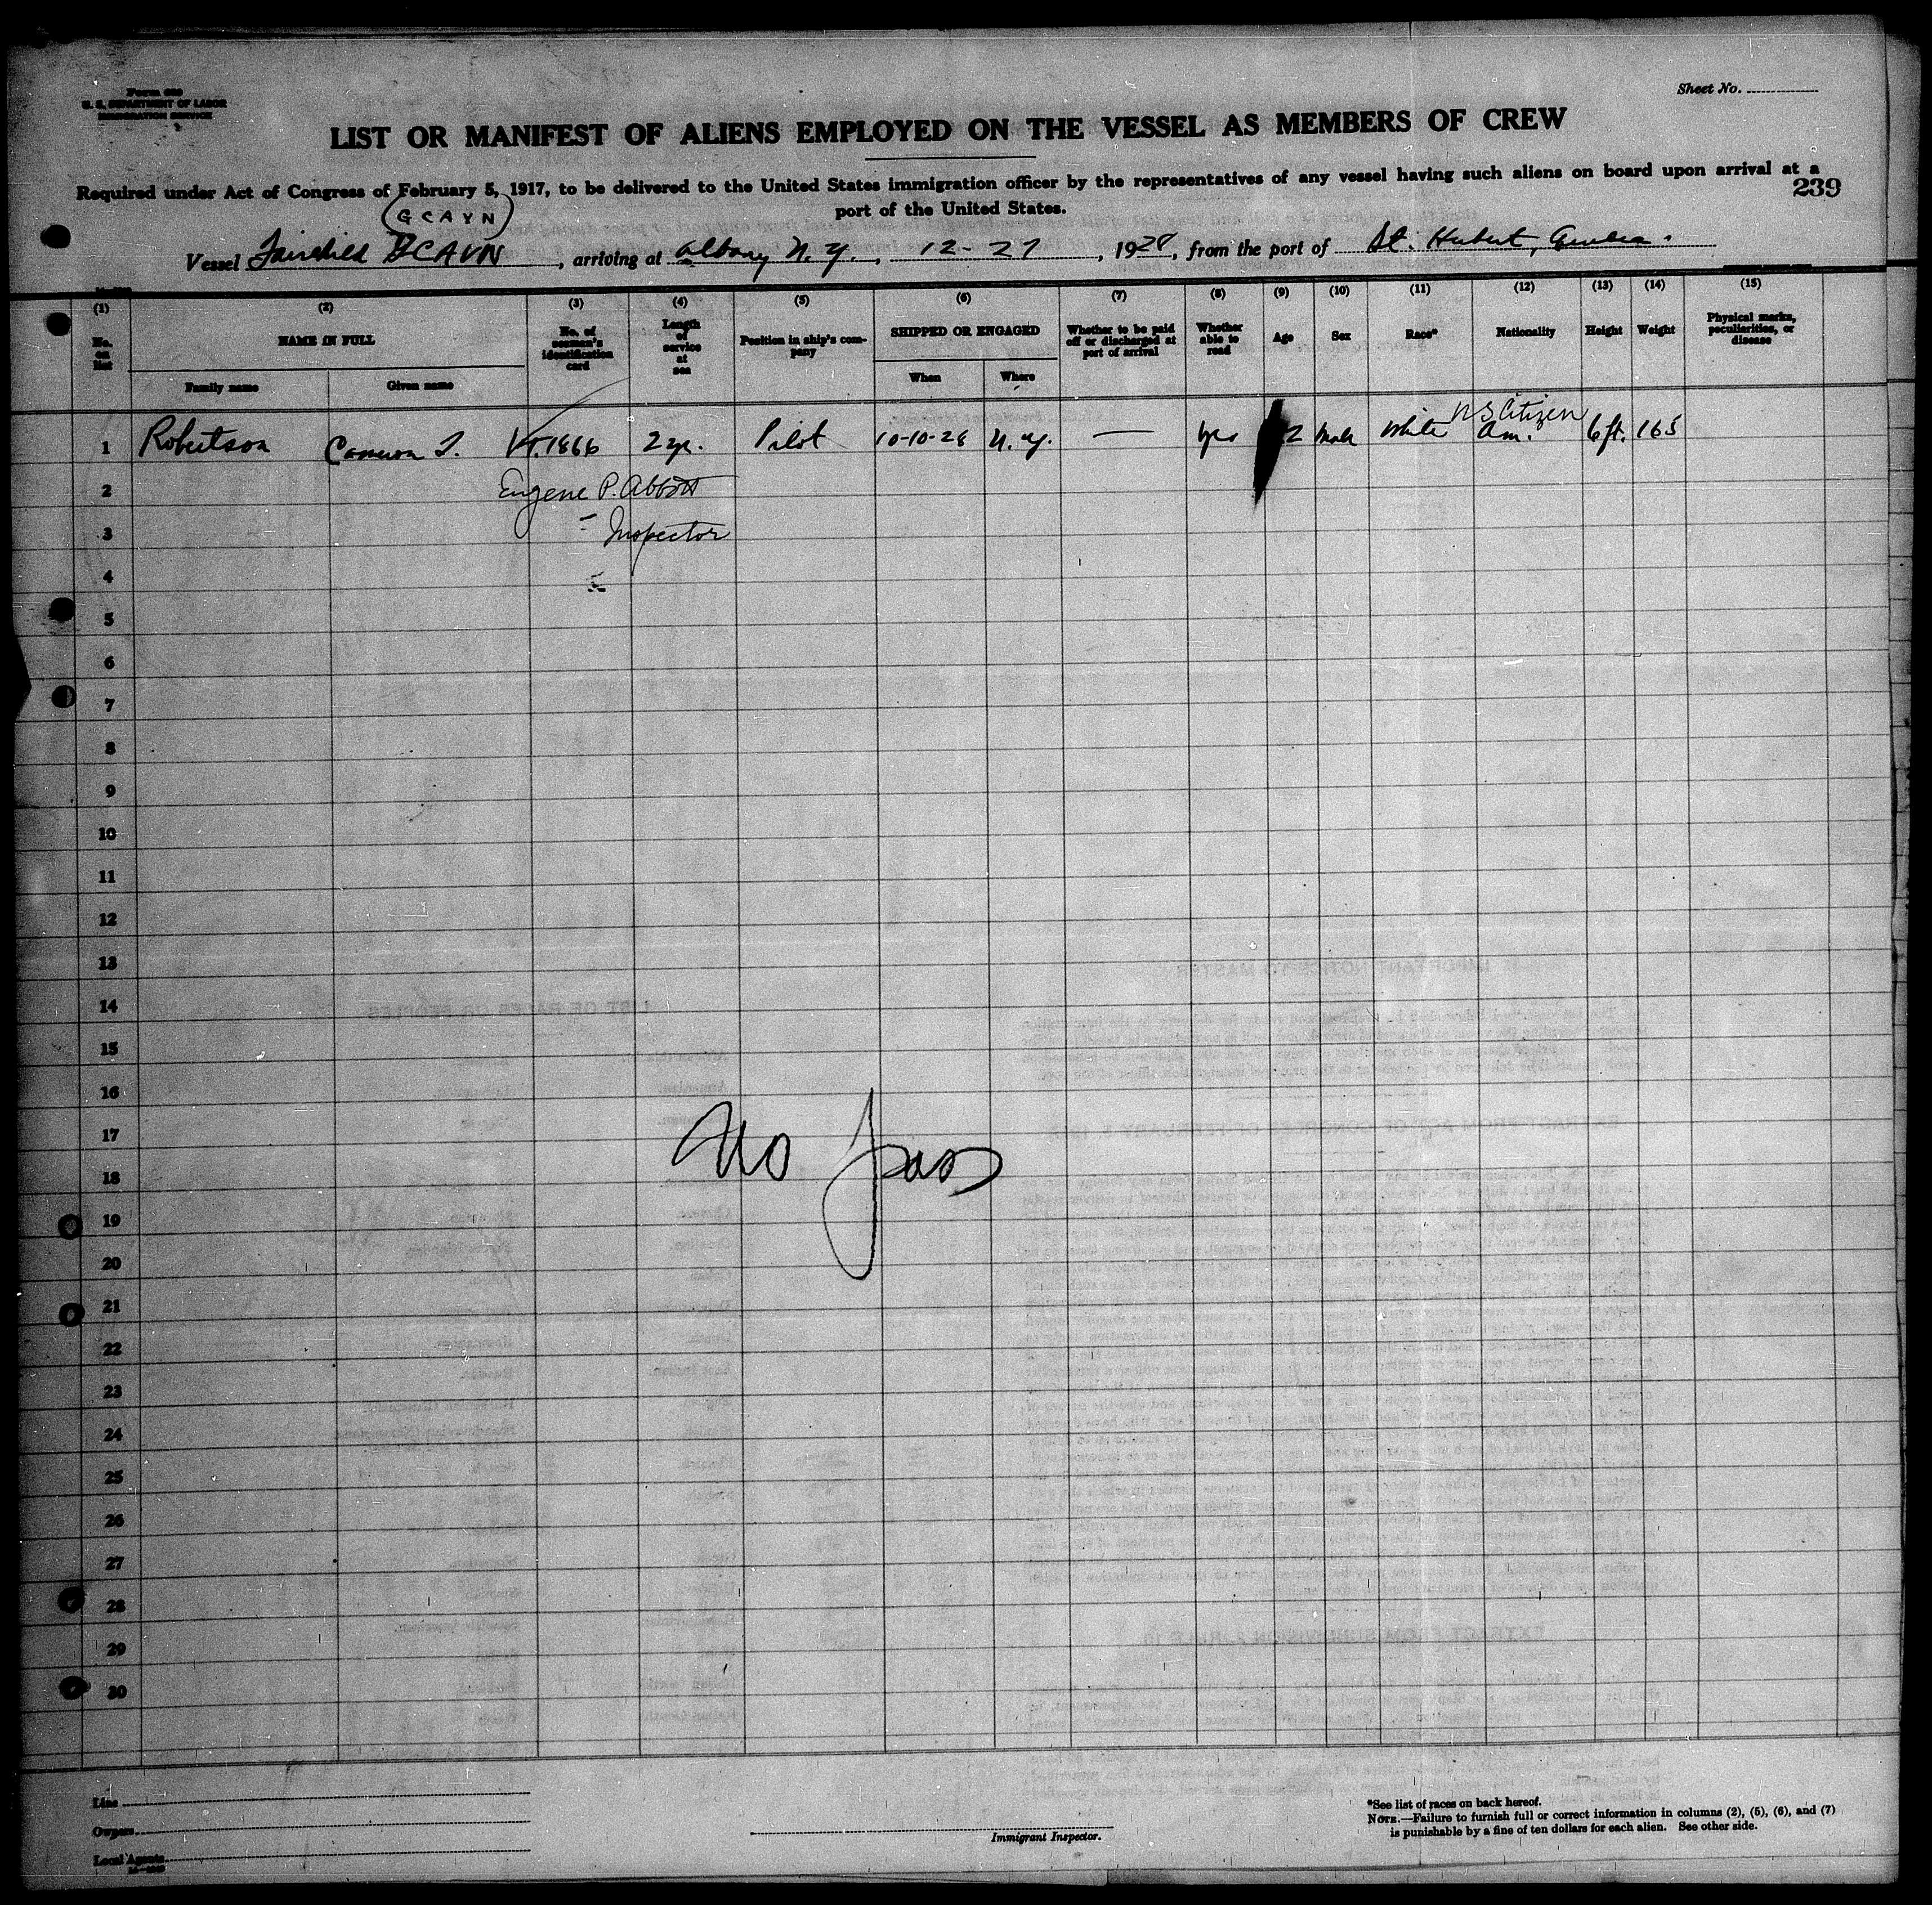 Form 680
U. S. DEPARTMENT OF LABOR
IMMIGRATION SERVICE
Sheet No.
LIST OR MANIFEST OF ALIENS EMPLOYED ON THE VESSEL AS MEMBERS OF CREW
Required under Act of Congress of February 5, 1917, to be delivered to the United States immigration officer by the representatives of any vessel having such aliens on board upon arrival at a
port of the United States.
239
(GCAYN)
Vessel Fairchild GCAVN, arriving at Albany N. Y., 12-27, 1928, from the port of St. Hubert, Quebec.
(1) (2) (3) (4) (5) (6) (7) (8) (9) (10) (11) (12) (13) (14) (15)
No. on list NAME IN FULL No. of seaman's identification card Length of service at sea Position in ship's company SHIPPED OR ENGAGED Whether to be paid off or discharged at port of arrival Whether able to read Age Sex Race* Nationality Height Weight Physical marks, peculiarities, or disease
Family name Given name When Where
U S Citizen
1 Robertson Cameron T. Vt. 1866 2 yr. Pilot 10-10-28 N. Y. — yes 2 Male White Am. 6 ft. 165
2 Eugene P. Abbott
3 Inspector
4
5
6
7
8
9
10
11
12
13
14
15
16
17 No pass
18
19
20
21
22
23
24
25
26
27
28
29
30
Line
Owners
Local Agents
Immigrant Inspector.
*See list of races on back hereof.
NOTE.—Failure to furnish full or correct information in columns (2), (5), (6), and (7)
is punishable by a fine of ten dollars for each alien. See other side.